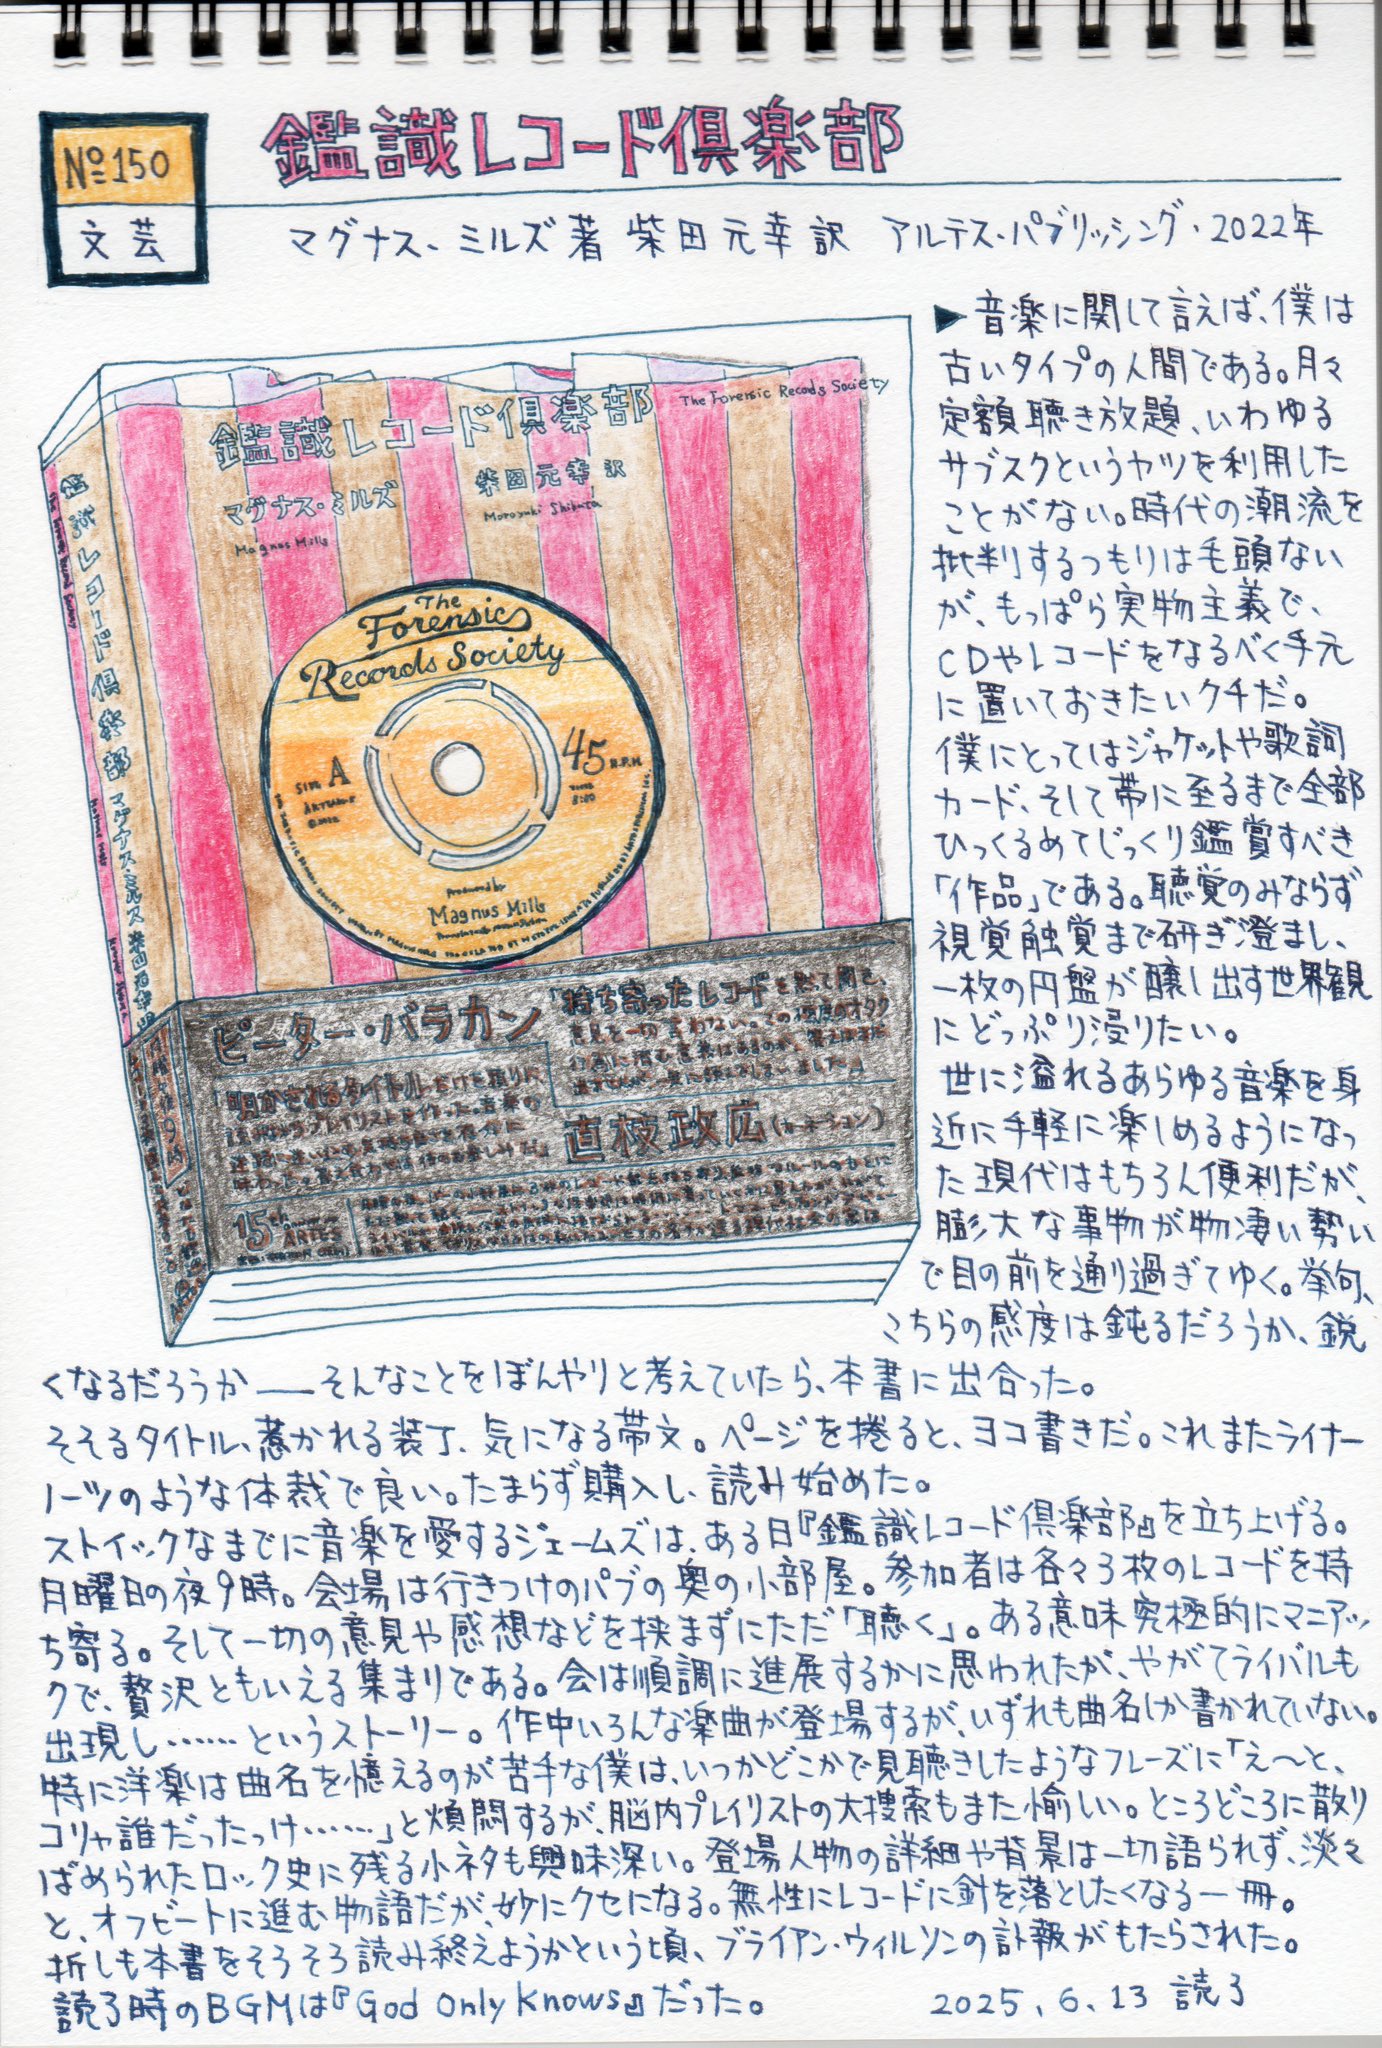 №150
文芸
鑑識レコード倶楽部
マグナス・ミルズ著 柴田元幸訳 アルテス・パブリッシング・2022年
The Forensic Records Society
鑑識レコード倶楽部
柴田元幸 訳
Motoyuki Shibata
マグナス・ミルズ
Magnus Mills
鑑識レコード倶楽部 マグナス・ミルズ 柴田元幸 訳
The
Forensic
Records Society
SIDE A
45 R.P.M.
Produced by
Magnus Mills
ピーター・バラカン
「持ち寄ったレコードを黙って聞き、
意見を一切言わない。この極度のオタク
「明かされるタイトルだけを頼りに、
直枝政広(カーネーション)
15th Anniversary
ARTES
▶音楽に関して言えば、僕は
古いタイプの人間である。月々
定額聴き放題、いわゆる
サブスクというヤツを利用した
ことがない。時代の潮流を
批判するつもりは毛頭ない
が、もっぱら実物主義で、
CDやレコードをなるべく手元
に置いておきたいクチだ。
僕にとってはジャケットや歌詞
カード、そして帯に至るまで全部
ひっくるめてじっくり鑑賞すべき
「作品」である。聴覚のみならず
視覚触覚まで研ぎ澄まし、
一枚の円盤が醸し出す世界観
にどっぷり浸りたい。
世に溢れるあらゆる音楽を身
近に手軽に楽しめるようになっ
た現代はもちろん便利だが、
膨大な事物が物凄い勢い
で目の前を通り過ぎてゆく。挙句、
こちらの感度は鈍るだろうか、鋭
くなるだろうか――そんなことをぼんやりと考えていたら、本書に出合った。
そそるタイトル、惹かれる装丁、気になる帯文。ページを捲ると、ヨコ書きだ。これまたライナー
ノーツのような体裁で良い。たまらず購入し、読み始めた。
ストイックなまでに音楽を愛するジェームズは、ある日『鑑識レコード倶楽部』を立ち上げる。
月曜日の夜9時。会場は行きつけのパブの奥の小部屋。参加者は各々3枚のレコードを持
ち寄る。そして一切の意見や感想などを挟まずにただ「聴く」。ある意味究極的にマニアッ
クで、贅沢ともいえる集まりである。会は順調に進展するかに思われたが、やがてライバルも
出現し……というストーリー。作中いろんな楽曲が登場するが、いずれも曲名しか書かれていない。
特に洋楽は曲名を憶えるのが苦手な僕は、いつかどこかで見聴きしたようなフレーズに「え～と、
コリャ誰だったっけ……」と煩悶するが、脳内プレイリストの大捜索もまた愉しい。ところどころに散り
ばめられたロック史に残る小ネタも興味深い。登場人物の詳細や背景は一切語られず、淡々
と、オフビートに進む物語だが、妙にクセになる。無性にレコードに針を落としたくなる一冊。
折しも本書をそろそろ読み終えようかという頃、ブライアン・ウィルソンの訃報がもたらされた。
読了時のBGMは『God Only Knows』だった。
2025.6.13 読了